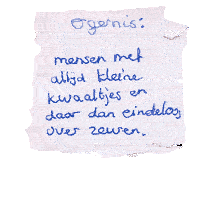 ogernis:
mensen met
altijd kleine
kwaaltjes en
daar dan eindeloos
over zeuren.